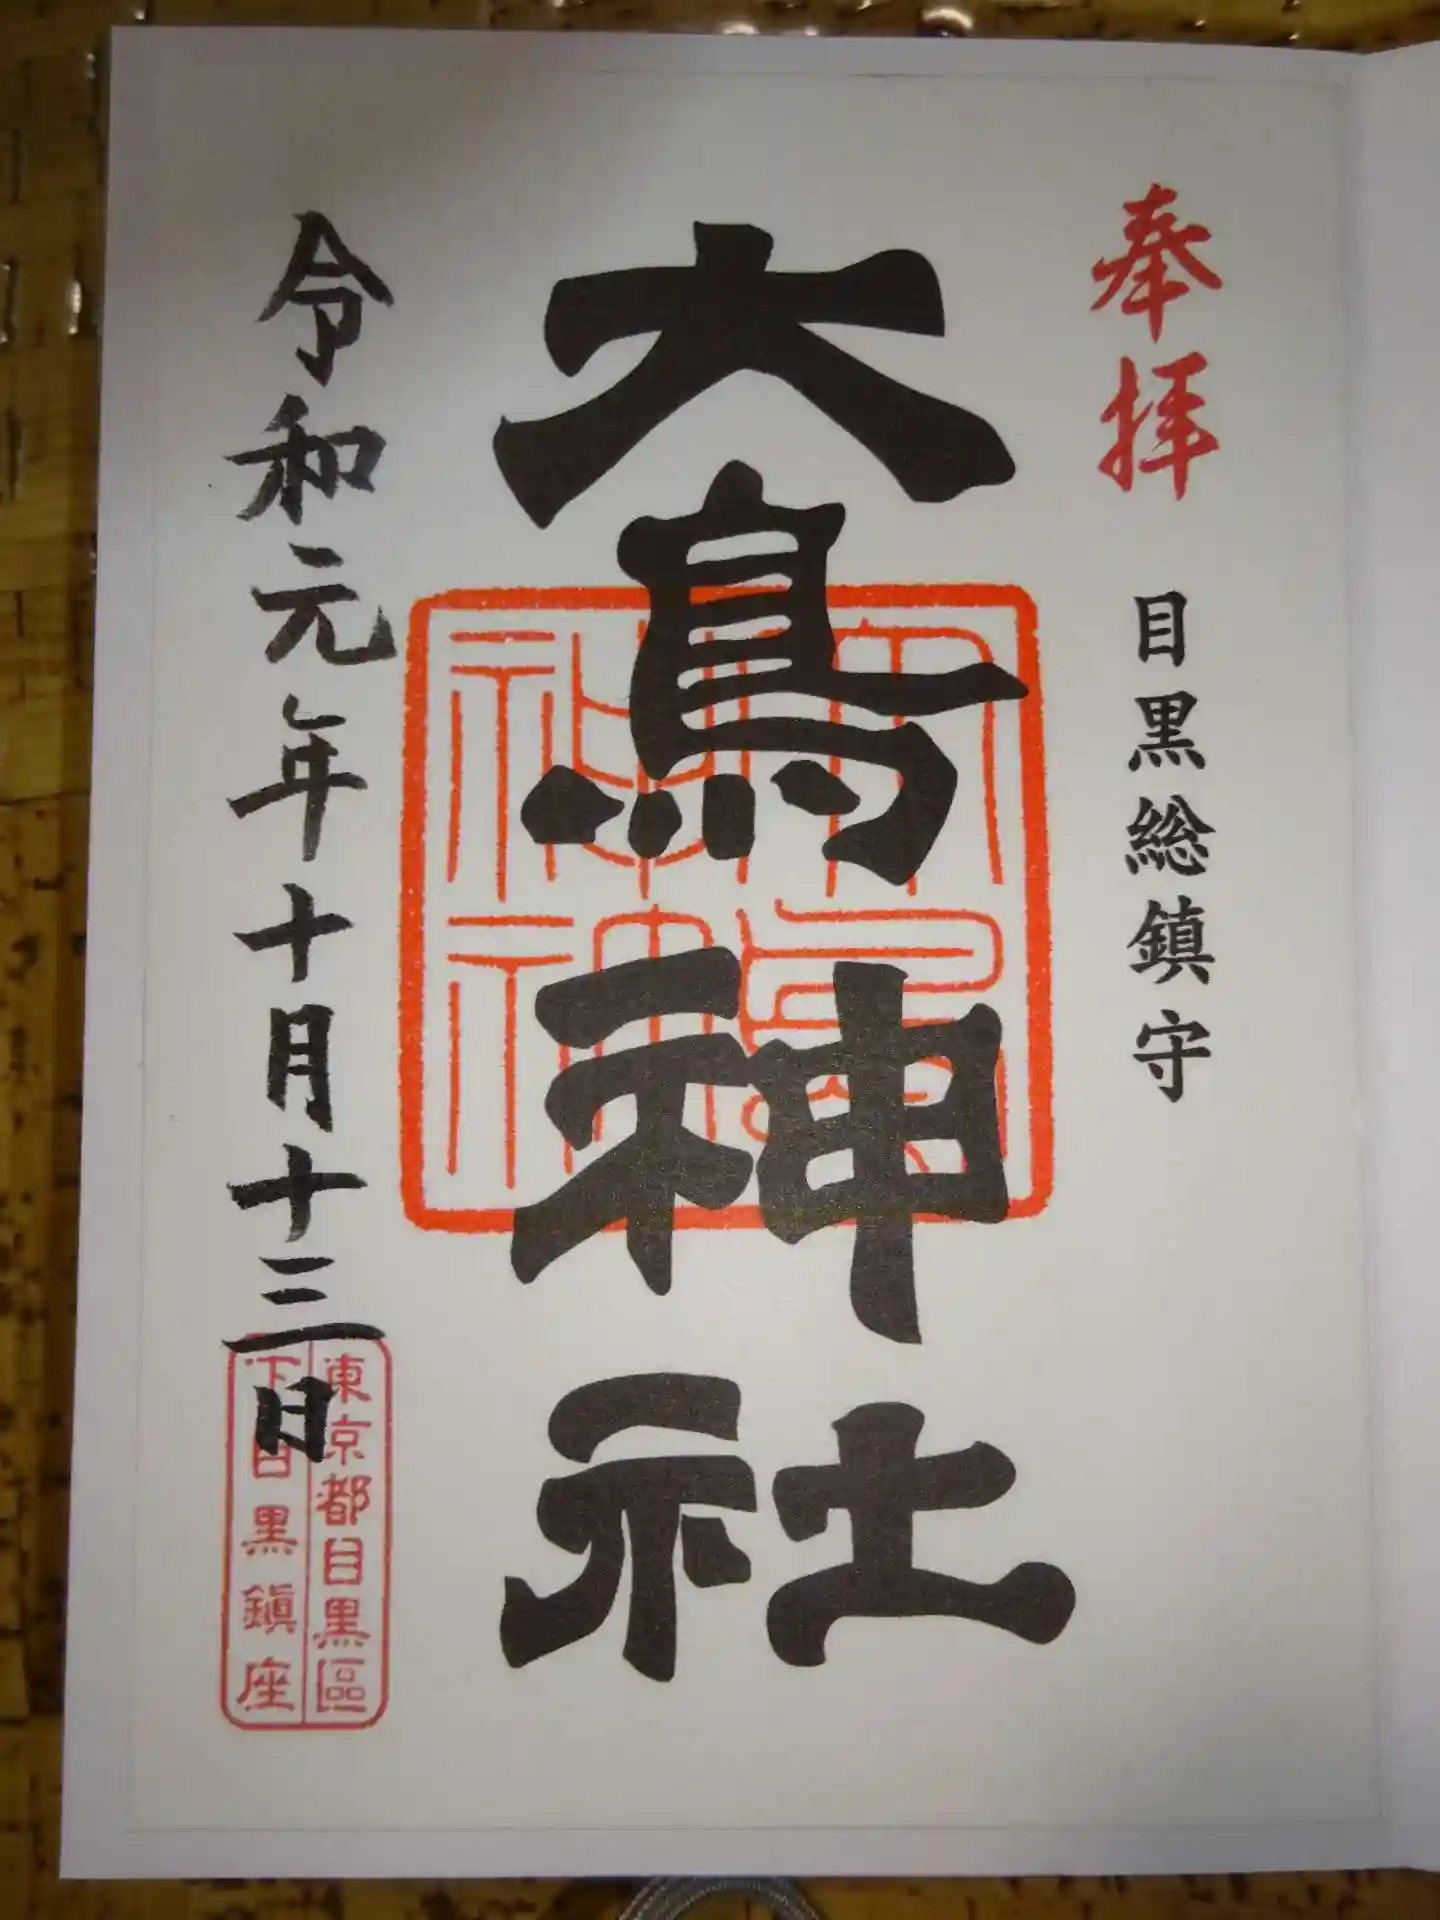 奉拝
目黒総鎮守
大鳥神社
令和元年十月十三日
東京都目黒區
下目黒鎮座